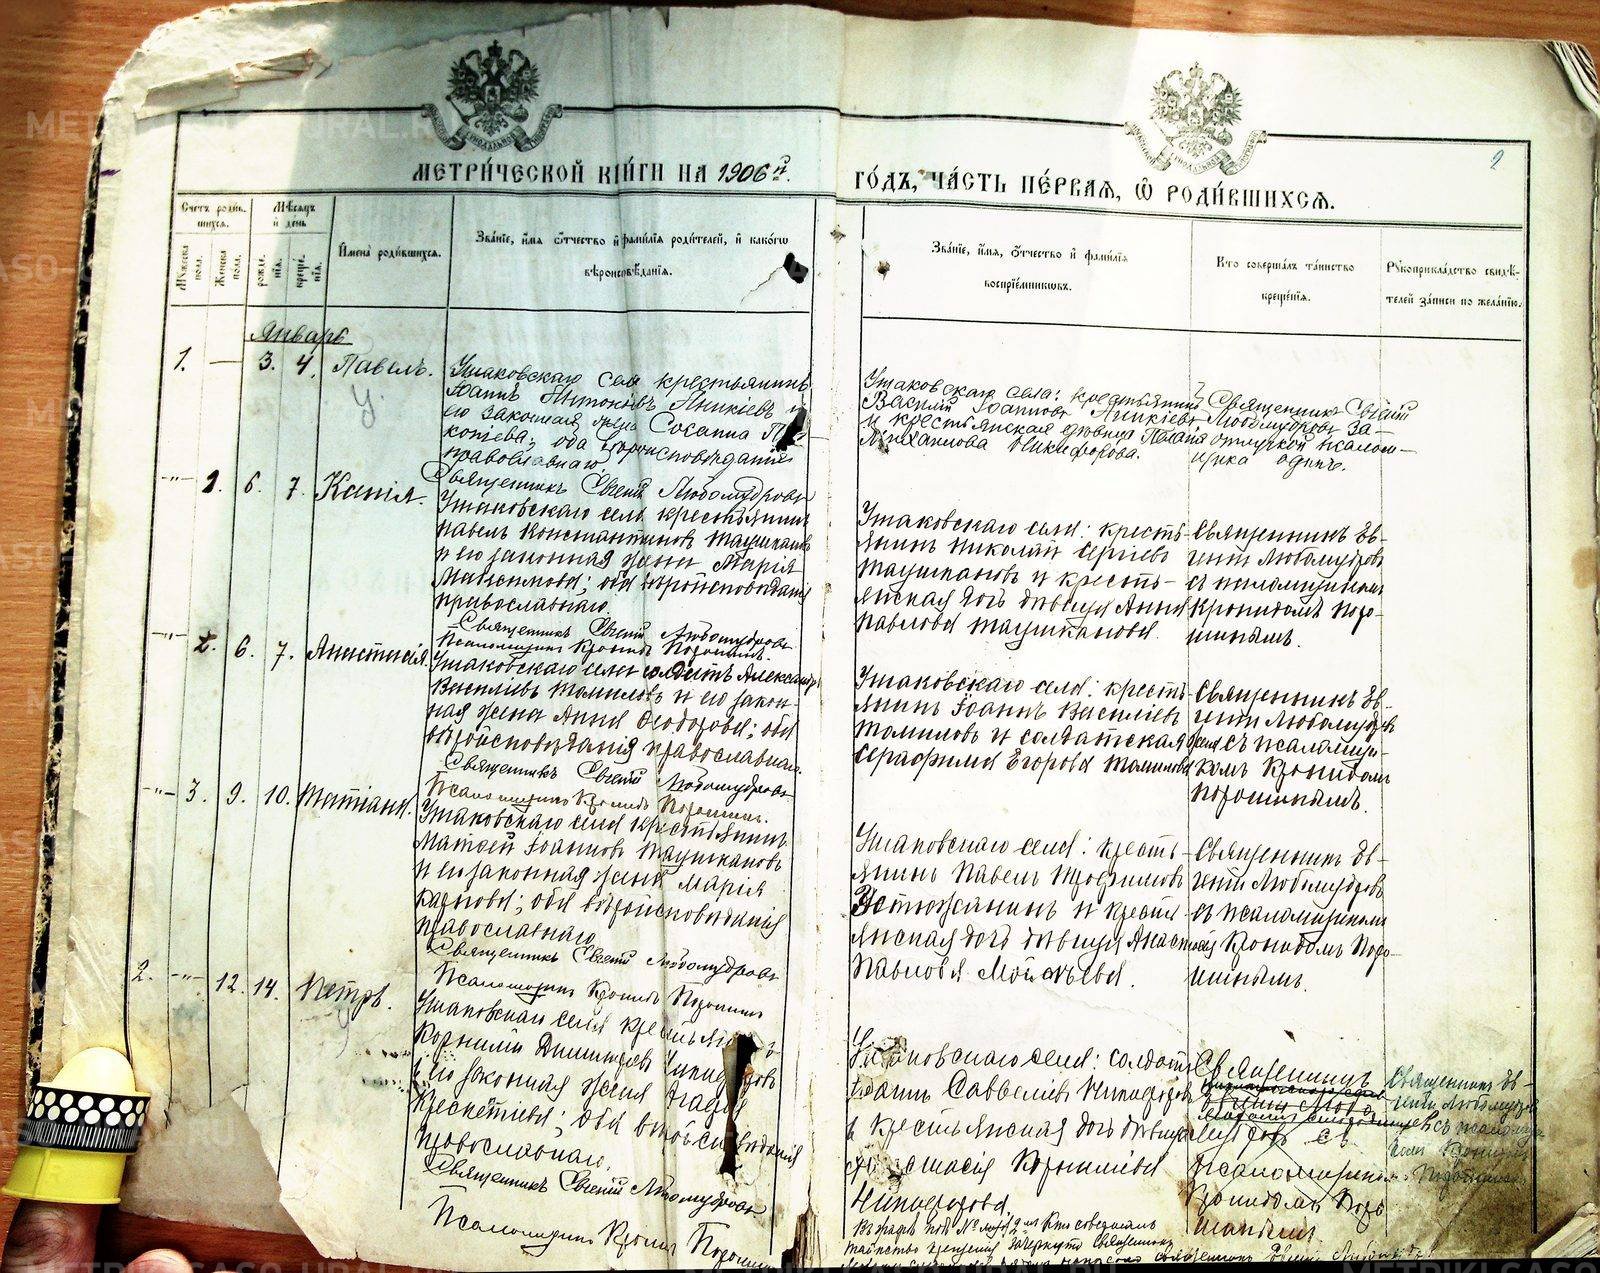 МЕТРИ́ЧЕСКОЙ КНИ́ГИ НА 1906й.
ГО́ДЪ, ЧА́СТЬ ПЕ́РВАЯ, Ѽ РОДИ́ВШИХСЯ.
2
Счетъ роди́в-
шихся.
Мѣсяцъ
и де́нь
Мужеска пола.
Женска пола.
рожде́нія.
креще́нія.
Имена̀ роди́вшихся.
Зва́ніе, и́мя ѻ́тчество и фами́лія роди́телей, и како́гѡ
вѣроисповѣ́данія.
Зва́ніе, и́мя, ѻ́тчество и фами́лія
воспріе́мниковъ.
Кто соверша́лъ та́инство
креще́нія.
Рꙋкоприкла́дство свидѣ́-
телей за́писи по жела́нію.
Январь
1. — 3. 4. Павелъ.
Ушаковскаго села крестьянинъ
Іоаннъ Антоновъ Аникіевъ и
его законная жена Сосанна
оба вѣроисповѣданія
православнаго.
Священникъ Евгеній Любомудровъ
Ушаковскаго села: крестьянинъ
Василій Іоанновъ Аникіевъ
и крестьянская дѣвица
Михаилова Никифорова.
Священникъ Евгеній
Любомудровъ за
отлучкой псалом-
щика одинъ.
-"- 1. 6. 7. Ксенія.
Ушаковскаго села крестьянинъ
Павелъ Константиновъ Таушкановъ
и его законная жена Марія
Максимова; оба вѣроисповѣданія
православнаго.
Священникъ Евгеній Любомудровъ
Псаломщикъ Кронидъ Порошинъ.
Ушаковскаго села: кресть-
янинъ Николай Сергіевъ
Таушкановъ и кресть-
янская дочь дѣвица Анна
Павлова Таушканова.
Священникъ Ев-
геній Любомудровъ
съ псаломщикомъ
Кронидомъ Поро-
шинымъ.
-"- 2. 6. 7. Анастасія.
Ушаковскаго села солдатъ Александръ
Василіевъ Томиловъ и его закон-
ная жена Анна Ѳеодорова; оба
вѣроисповѣданія православнаго.
Священникъ Евгеній Любомудровъ
Псаломщикъ Кронидъ Порошинъ.
Ушаковскаго села: кресть-
янинъ Іоаннъ Василіевъ
Томиловъ и солдатская жена
Серафима Егорова Томилова
Священникъ Ев-
геній Любомудровъ
съ псаломщи-
комъ Кронидомъ
Порошинымъ.
-"- 3. 9. 10. Татіана.
Ушаковскаго села крестьянинъ
Матѳей Іоанновъ Таушкановъ
и его законная жена Марія
Карпова; оба вѣроисповѣданія
православнаго.
Священникъ Евгеній Любомудровъ
Псаломщикъ Кронидъ Порошинъ
Ушаковскаго села: кресть-
янинъ Павелъ Трофимовъ
Устюжанинъ и кресть-
янская дочь дѣвица Анастасія
Павлова Моисѣева.
Священникъ Ев-
геній Любомудровъ
съ псаломщикомъ
Кронидомъ Поро-
шинымъ.
2. -"- 12. 14. Петръ.
Ушаковскаго села
Корнилій Димитріевъ
и его законная жена Агафія
оба вѣроисповѣданія
православнаго.
Священникъ Евгеній Любомудровъ
Псаломщикъ Кронидъ Порошинъ
села: солдатъ
Іоаннъ Савельевъ Никифоровъ
и крестьянская дочь дѣвица
Корнилієва
Никифорова.
Священникъ
съ
Псаломщикомъ
Кронидомъ Поро-
шинымъ
Священникъ Ев-
геній Любомудровъ
съ псаломщи-
комъ Кронидомъ
Порошинымъ
Въ графѣ подъ № муж. 2 Кто совершалъ
таинство крещенія зачеркнуто Священникъ